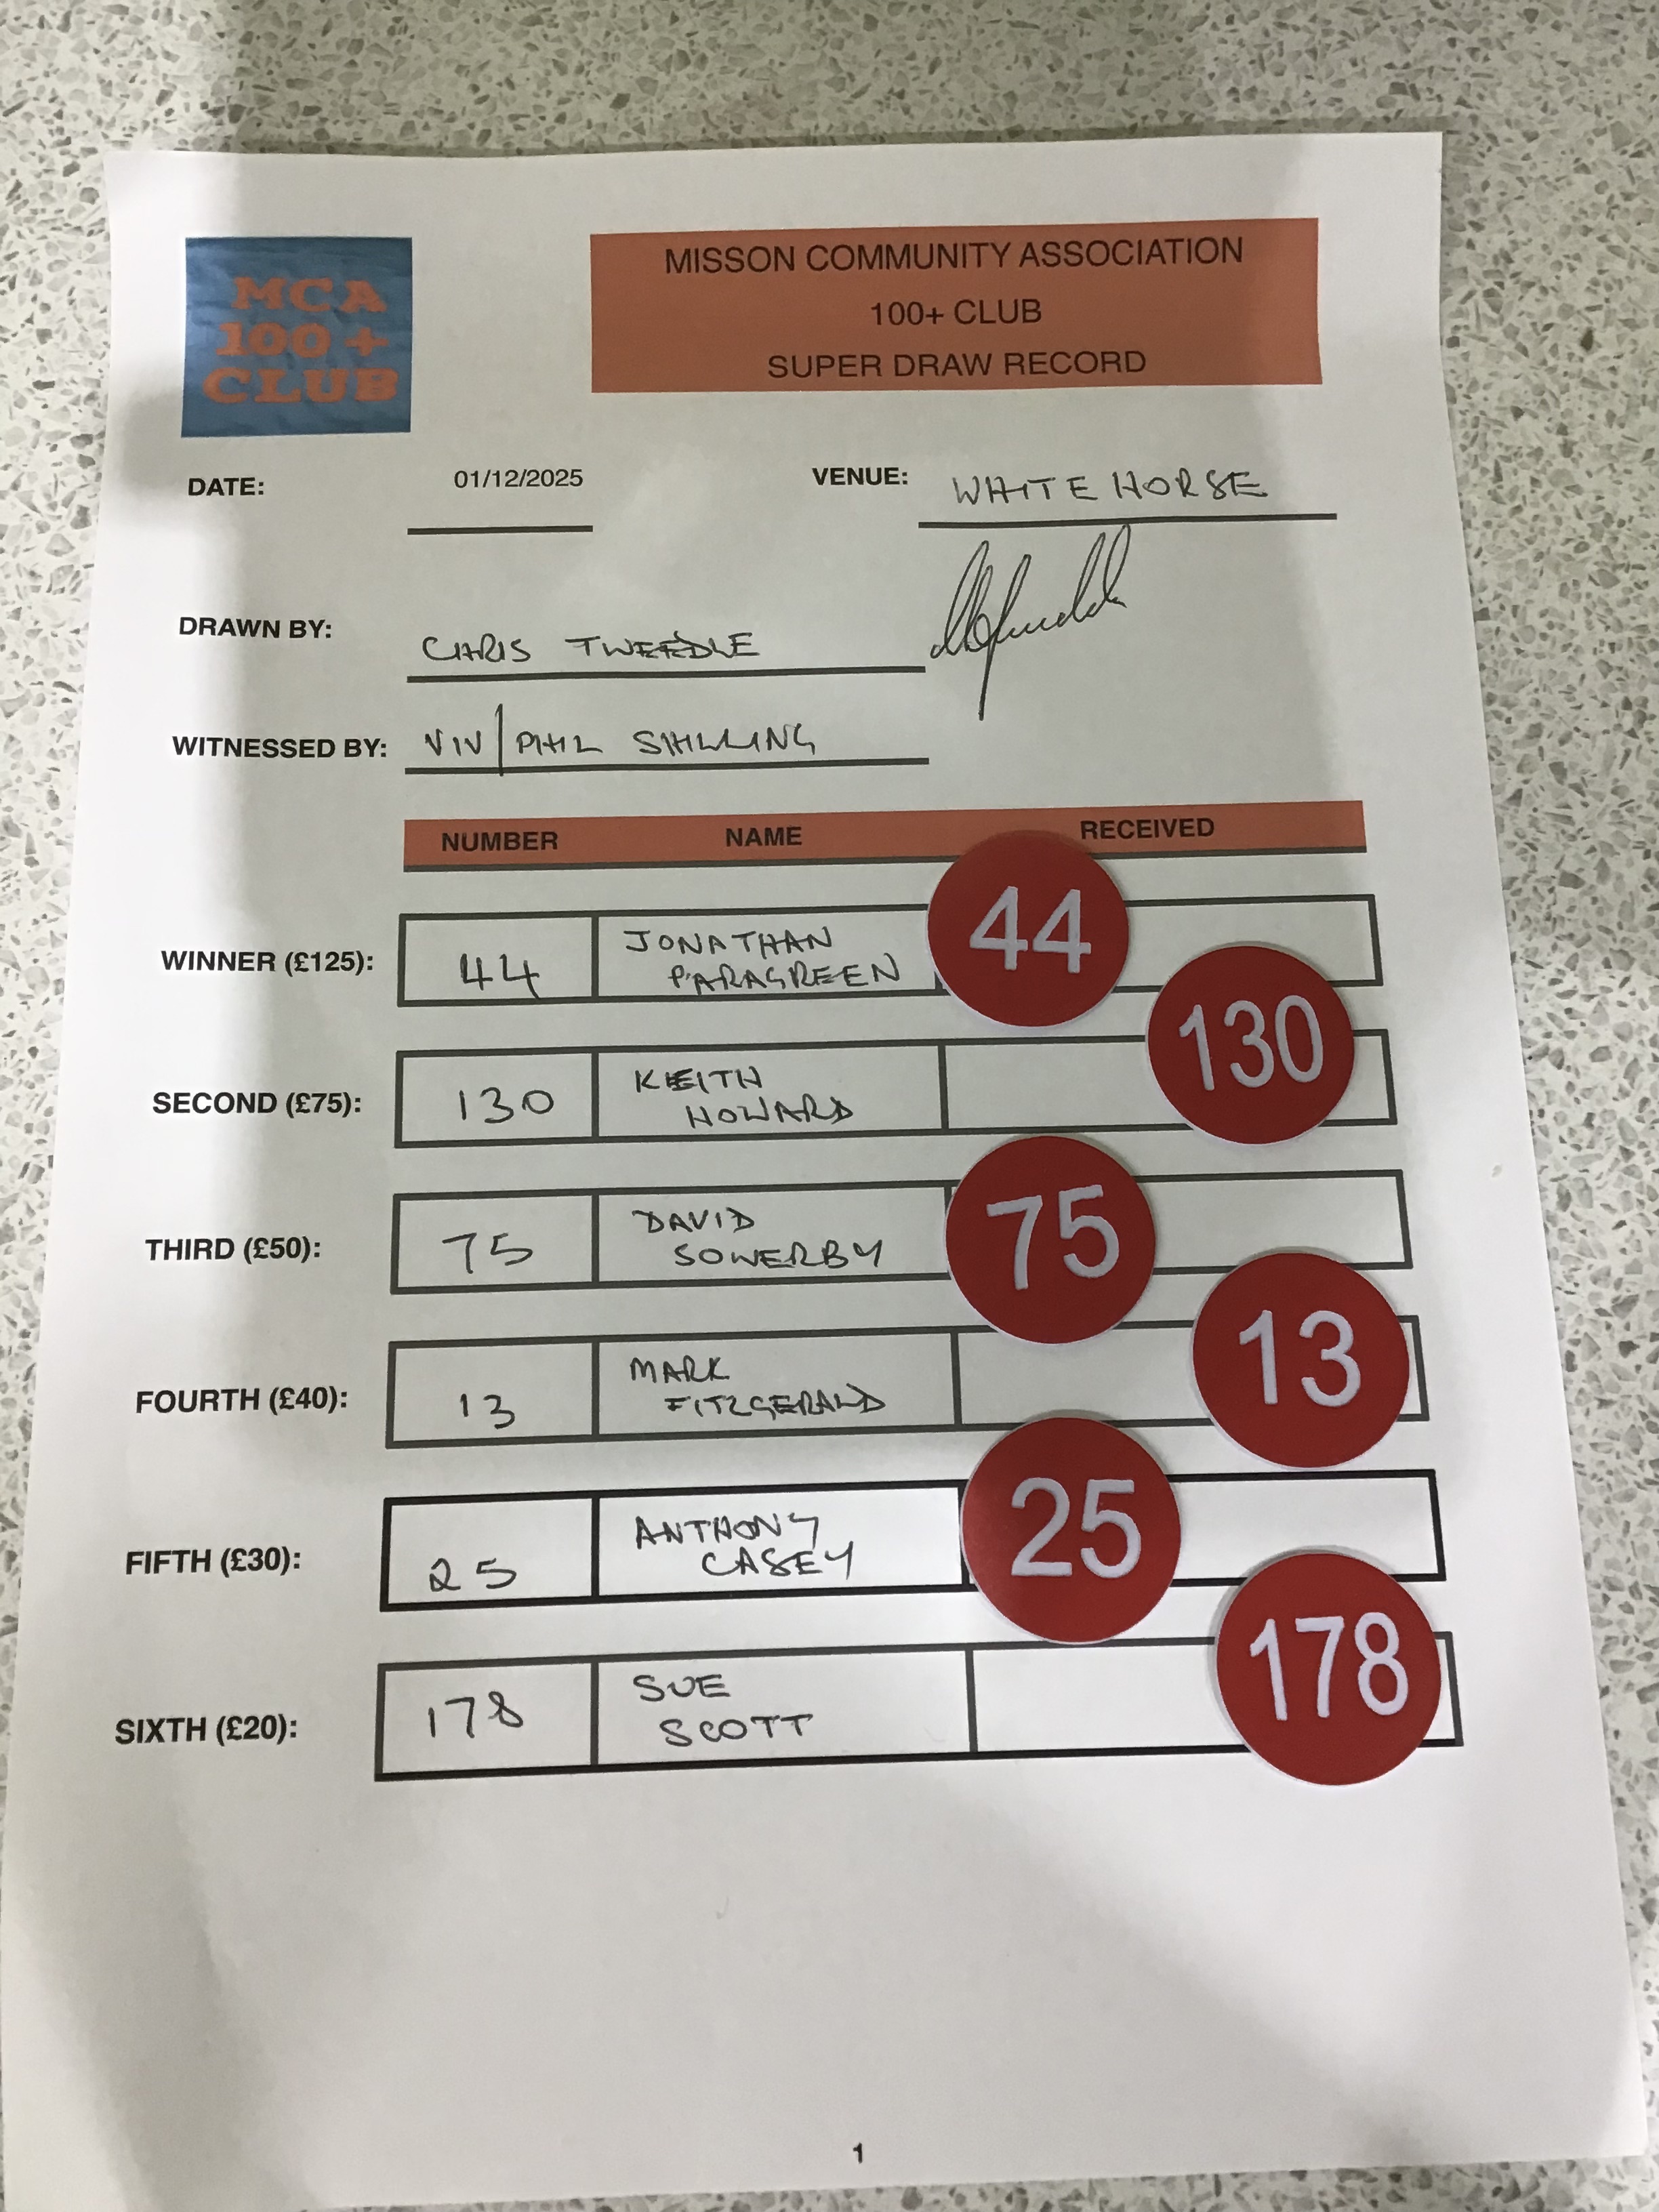 MCA
100 +
CLUB
MISSON COMMUNITY ASSOCIATION
100+ CLUB
SUPER DRAW RECORD
DATE: 01/12/2025 VENUE: WHITE HORSE
DRAWN BY: CHRIS TWEEDLE
WITNESSED BY: VIV/PHIL SHILLING
NUMBER NAME RECEIVED
WINNER (£125): 44 JONATHAN
PARAGREEN
44
SECOND (£75): 130 KEITH
HOWARD
130
THIRD (£50): 75 DAVID
SOWERBY
75
FOURTH (£40): 13 MARK
FITZGERALD
13
FIFTH (£30): 25 ANTHONY
CASEY
25
SIXTH (£20): 178 SUE
SCOTT
178
1